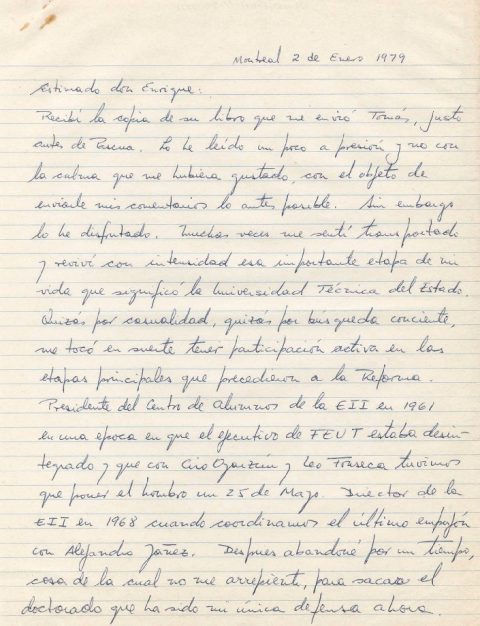 Montreal 2 de Enero 1979
Estimado don Enrique:
Recibí la copia de su libro que me envió Tomás, justo
antes de Pascua. Lo he leído un poco a presión y no con
la calma que me hubiera gustado, con el objeto de
enviarle mis comentarios lo antes posible. Sin embargo
lo he disfrutado. Muchas veces me sentí transportado
y reviví con intensidad esa importante etapa de mi
vida que significó la Universidad Técnica del Estado.
Quizás por casualidad, quizás por búsqueda conciente,
me tocó en suerte tener participación activa en las
etapas principales que precedieron a la Reforma.
Presidente del Centro de Alumnos de la EII en 1961
en una epoca en que el ejecutivo de FEUT estaba desin-
tegrado y que con Ciro Oyarzún y Leo Fonseca tuvimos
que poner el hombro un 25 de Mayo. Director de la
EII en 1968 cuando coordinamos el último empujón
con Alejandro Yañez. Despues abandoné por un tiempo,
cosa de la cual no me arrepiento, para sacar el
doctorado que ha sido mi única defensa ahora.